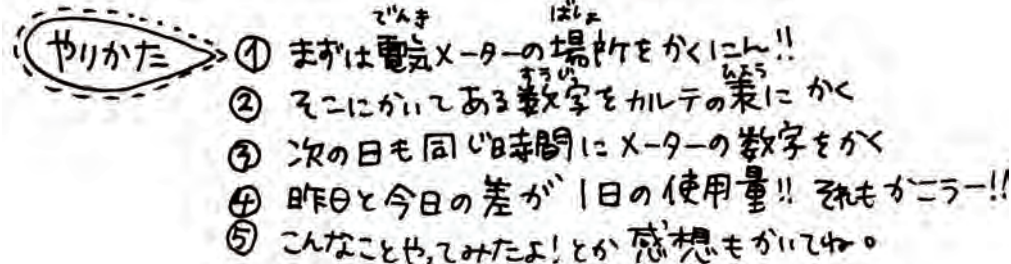 やりかた
① まずは電気メーターの場所をかくにん!!
② そこにかいてある数字をカルテの表に かく
③ 次の日も同じ時間にメーターの数字をかく
④ 昨日と今日の差が 1日の使用量!! それもかこうー!!
⑤ こんなことやってみたよ!とか 感想もかいてね。